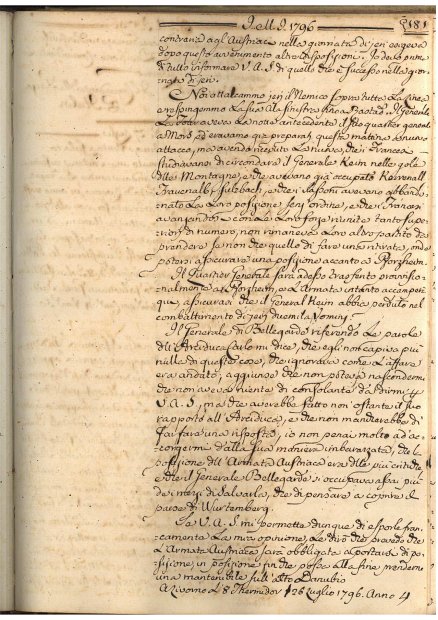 J. M. J. 1796
181
contraria agl' Austriaci nella giornata di jeri esigeva
dopo questo avvenimento altre disposizioni. Io devo prim
di tutto informare V. A. S. di quello che è successo nella gior
nata di jeri.
Noi attaccammo jeri il Nemico sopra tutta la linea
e respingemmo la sua ala sinistra fino a Il Generale
La notte antecedente il suo quartier general
a ed eravamo que preparati questa matina a nuovo
attacco, ma avendo ricevuto la nuova, che i Francesi
studiavano di circondare il Generale Keim nelle gole
delle Montagne, e che avevano già occupato
Frauenalb, e che i Sassoni avevano abbando
nato la loro posizione senz' ordine, e che i Francesi
avanzandosi con le loro forze riunite tanto supe
riori di numero, non rimaneva loro altro partito da
prendere se non che quello di fare una ritirata, onde
potersi assicurare una posizione accanto a Pforzheim.
Il Quartier Generale sarà adesso trasferito provvisio
nalmente a Pforzheim, e l'Armata intanto accampata
qua, assicurasi che il General Keim abbia perduto nel
combattimento di jeri duemila Uomini.
Il Generale di Bellegarde riferendo le parole
dell' Arciduca Carlo mi dice, che egli non capiva più
nulla di queste cose, che ignorava come l'affare
era andato; aggiunse che non poteva nascondermi
che non aveva niente di consolante da dirmi
V. A. S., ma che averebbe fatto non ostante il suo
rapporto all' Arciduca, e che non mancherebbe di
farmi fare una risposta, io non penai molto ad ac
corgermi dalla sua maniera imbarazzata, che la
posizione dell' Armata Austriaca era delle più critiche
e che il Generale Bellegarde si occupava assai più
de' mezzi di salvarla, che di pensare a coprire il
paese di Wurtemberg.
La V. A. S. mi permetta dunque di esporle fran
camente la mia opinione, Le dirò che prevedo che
l'Armata Austriaca sarà obbligata a portarsi di po
sizione, in posizione fin che possa alla fine prenderne
una mantenibile sull' alto Danubio
a Livorno Li 8 Thermidor 26 Luglio 1796. Anno 4